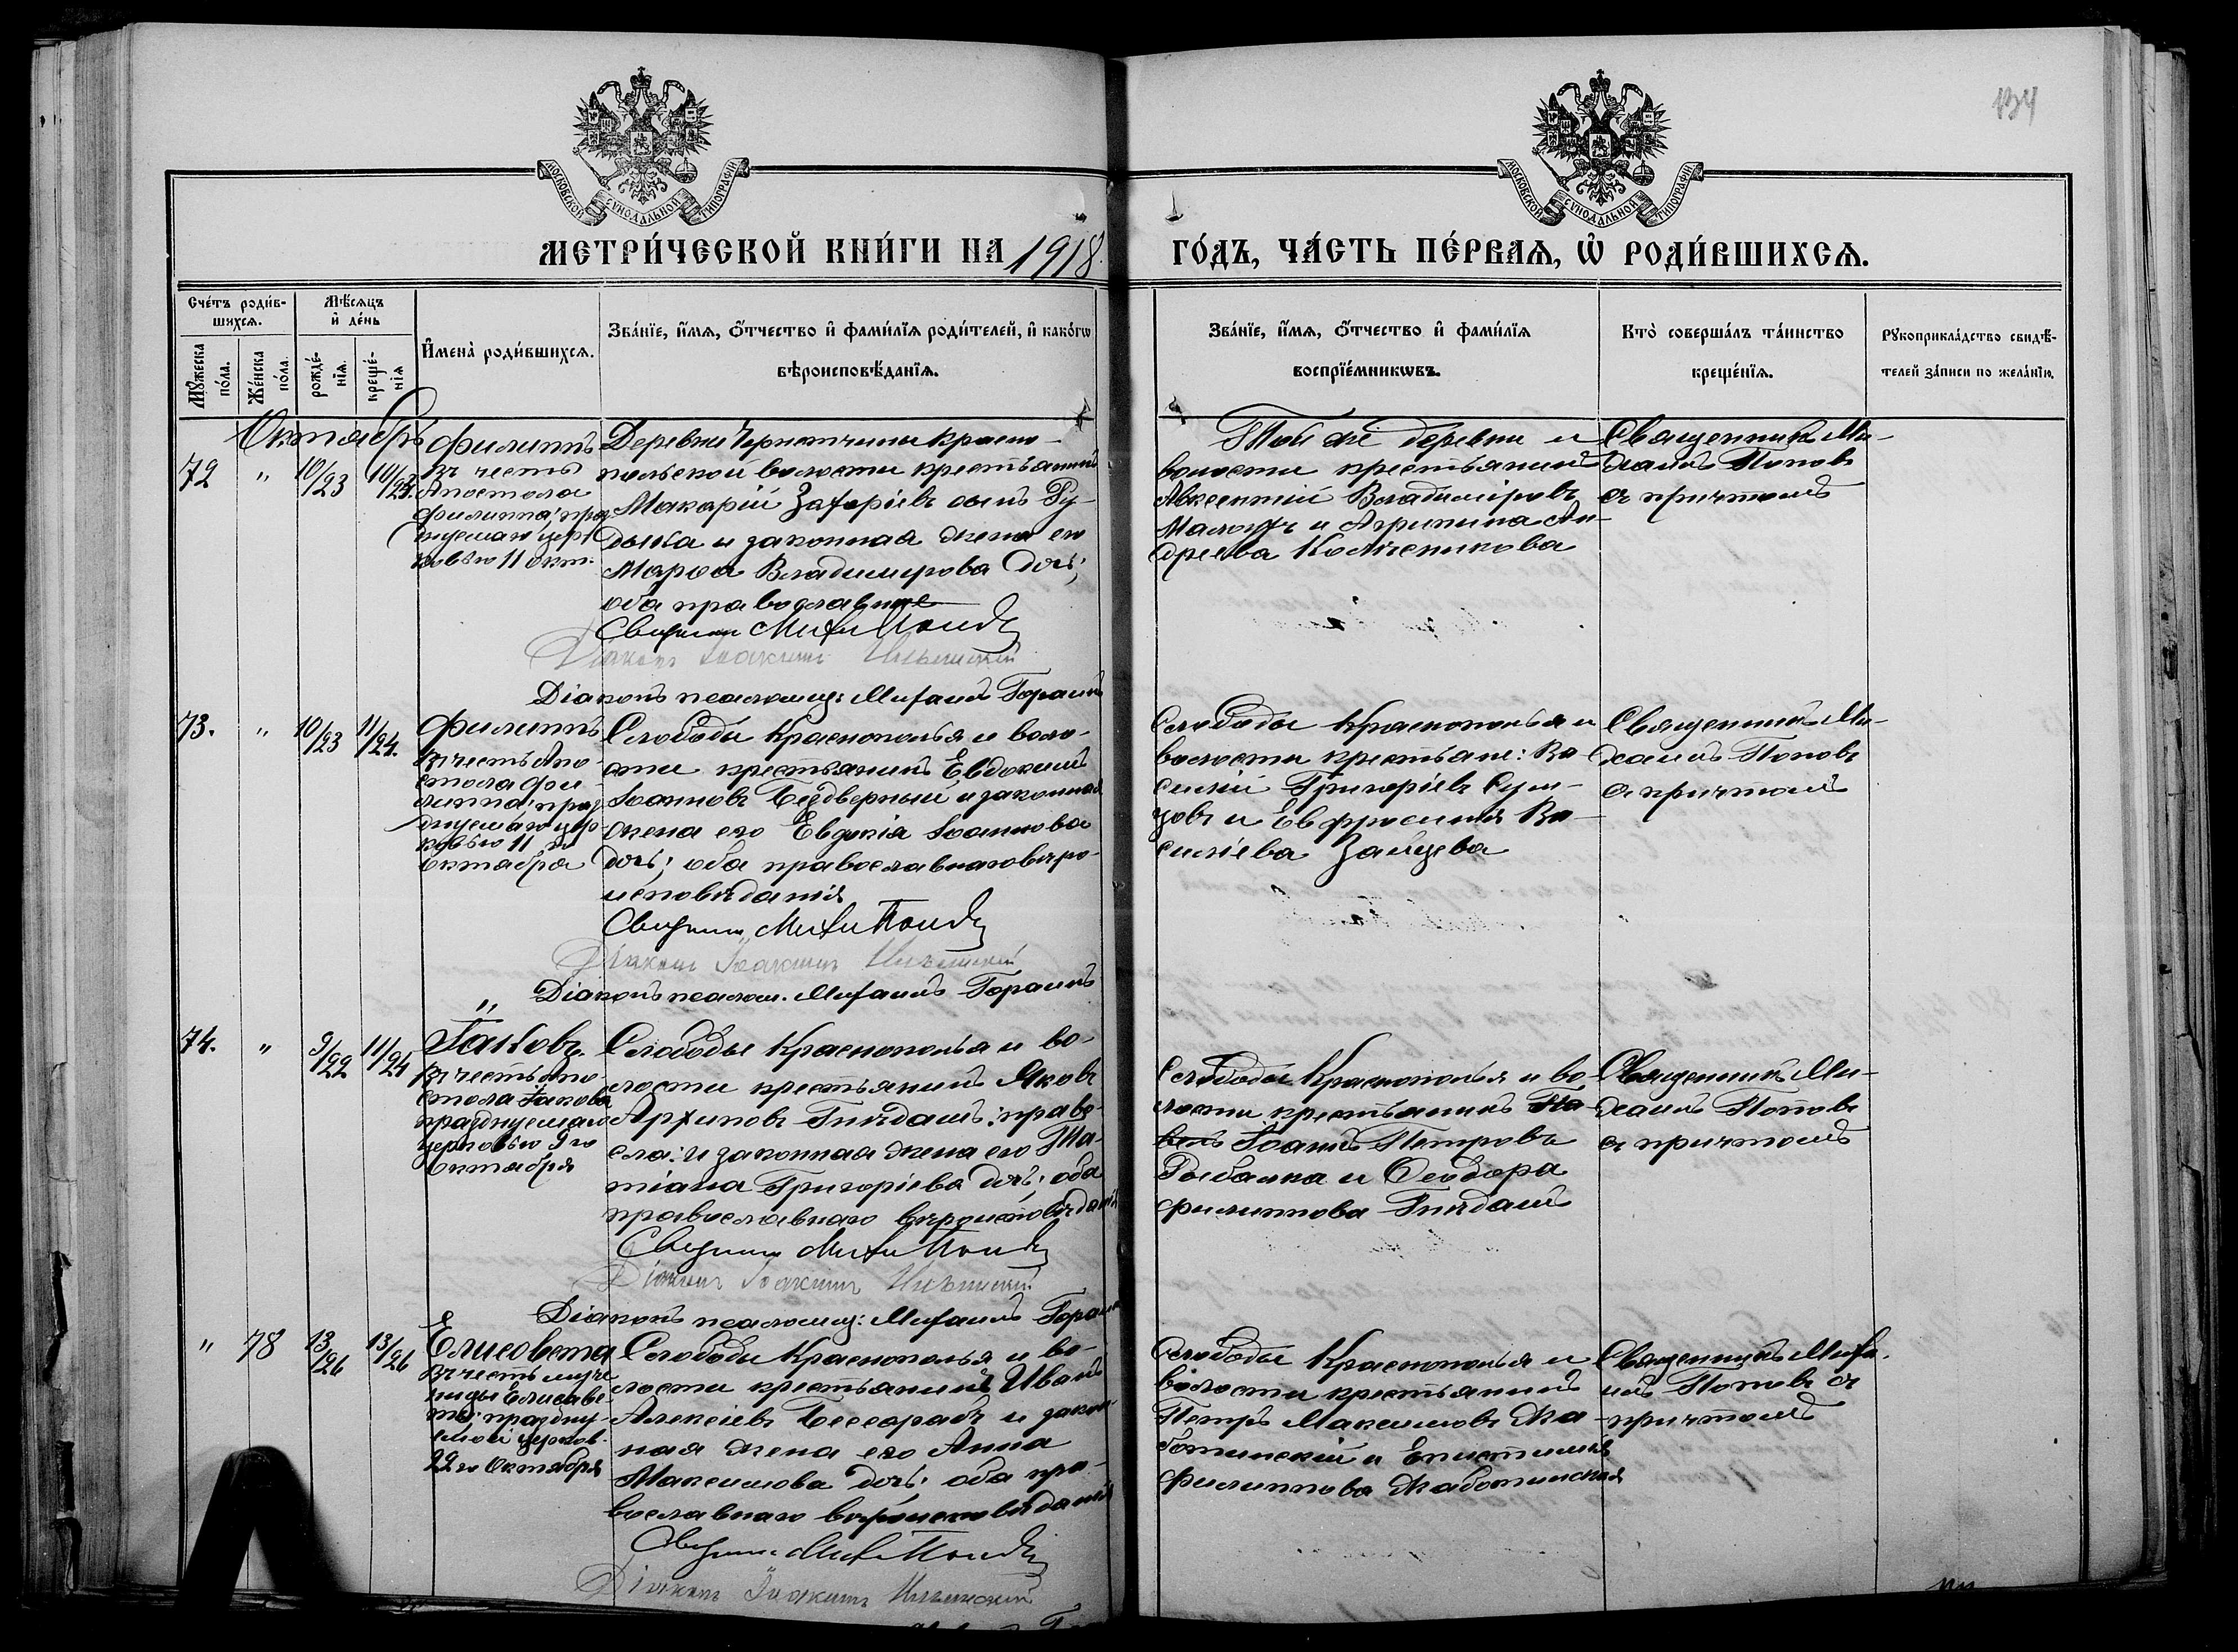 134
МОСКОВСКОЙ СУНОДАЛЬНОЙ ТИПОГРАФІИ
МОСКОВСКОЙ СУНОДАЛЬНОЙ ТИПОГРАФІИ
МЕТРИ́ЧЕСКОЙ КНИ́ГИ НА 1918
ГО́ДЪ, ЧА́СТЬ ПЕ́РВАЯ, Ѡ҆ РОДИ́ВШИХСѦ.
Сче́тъ роди́в-
шихсѧ.
Мꙋ́жеска
по́ла.
Же́нска
по́ла.
Мѣ́сѧцъ
и҆ де́нь
рожде́-
нїѧ.
креще́-
нїѧ
И҆мена̀ роди́вшихсѧ.
Зва́нїе, и҆́мѧ, ѻ҆́тчество и҆ фами́лїѧ роди́телей, и҆ како́гѡ
вѣроисповѣ́данїѧ.
Зва́нїе, и҆́мѧ, ѻ҆́тчество и҆ фами́лїѧ
воспрїе́мникѡвъ.
Кто̀ соверша́лъ та́инство
креще́нїѧ.
Рꙋкоприкла́дство свидѣ́-
телей за́писи по жела́нїю.
Октябрь
72 " 10/23 10/23.
Филиппъ
въ честь
Апостола
Филиппа, праз-
днуемаго цер-
ковью 11 окт.
Деревни Чернетчины Красно-
польской волости крестьянинъ
Макарій Захаріевъ сынъ Ру-
дыка и законная жена его
Марѳа Владимирова дочь;
оба православные
Священн Миха Поповъ
Діаконъ Іоакимъ Ильинскій
Діаконъ псаломщ: Михаилъ Гораинъ
Той же деревни и
волости крестьянинъ
Авксентій Владиміровъ
и Агрипина Ан-
дреева Колесникова
Священникъ Ми-
хаилъ Поповъ
съ причтомъ
73. " 10/23 11/24.
Филиппъ
въ честь Апо-
стола Фи-
липпа, праз-
днуемаго цер-
ковью 11 го
Октября
Слободы Краснополья и воло-
сти крестьянинъ Евдокимъ
Іоанновъ Бездверный и законная
жена его Евдокія Іоаннова
дочь; оба православнаго вѣро-
исповѣданія
Священн Миха Поповъ
Діаконъ Іоакимъ Ильинскій
Діаконъ псалом. Михаилъ Гораинъ
Слободы Краснополья и
волости крестьяне: Ва-
силій Григоріевъ Сум-
цовъ и Евфросинія Ва-
силіева Зайцева
Священникъ Ми-
хаилъ Поповъ
съ причтомъ
74. " 9/22 11/24
Іаковъ.
въ честь Апо-
стола Іакова
празднуемаго
церковью 9 го
Октября
Слободы Краснополья и во-
лости крестьянинъ Яковъ
Архиповъ Гнѣдашъ: право-
слав: и законная жена его Та-
тіана Григоріева дочь; оба
православнаго вѣроисповѣданія
Священн Миха Поповъ
Діаконъ Іоакимъ Ильинскій
Діаконъ псаломщ: Михаилъ Гораинъ
Слободы Краснополья и во-
лости крестьянинъ Па-
велъ Іоаннъ Петровъ
Рыбалка и Ѳеодора
Филиппова Гнѣдашъ
Священникъ Ми-
хаилъ Поповъ
съ причтомъ
" 78 13/26 13/26
Елисовета
въ честь муче
ницы Елисаве-
ты, праздну-
емой церков.
22 го Октября
Слободы Краснополья и во-
лости крестьянинъ Иванъ
Алексіевъ Бессарабъ и закон-
ная жена его Анна
Максимова дочь; оба пра-
вославнаго вѣроисповѣданія
Священн Миха Поповъ
Діаконъ Іоакимъ Ильинскій
Слободы Краснополья и
волости крестьянинъ
Петръ Максимовъ Жа-
ботинскій и Епистимія
Филиппова Жаботинская
Священникъ Миха-
илъ Поповъ съ
причтомъ